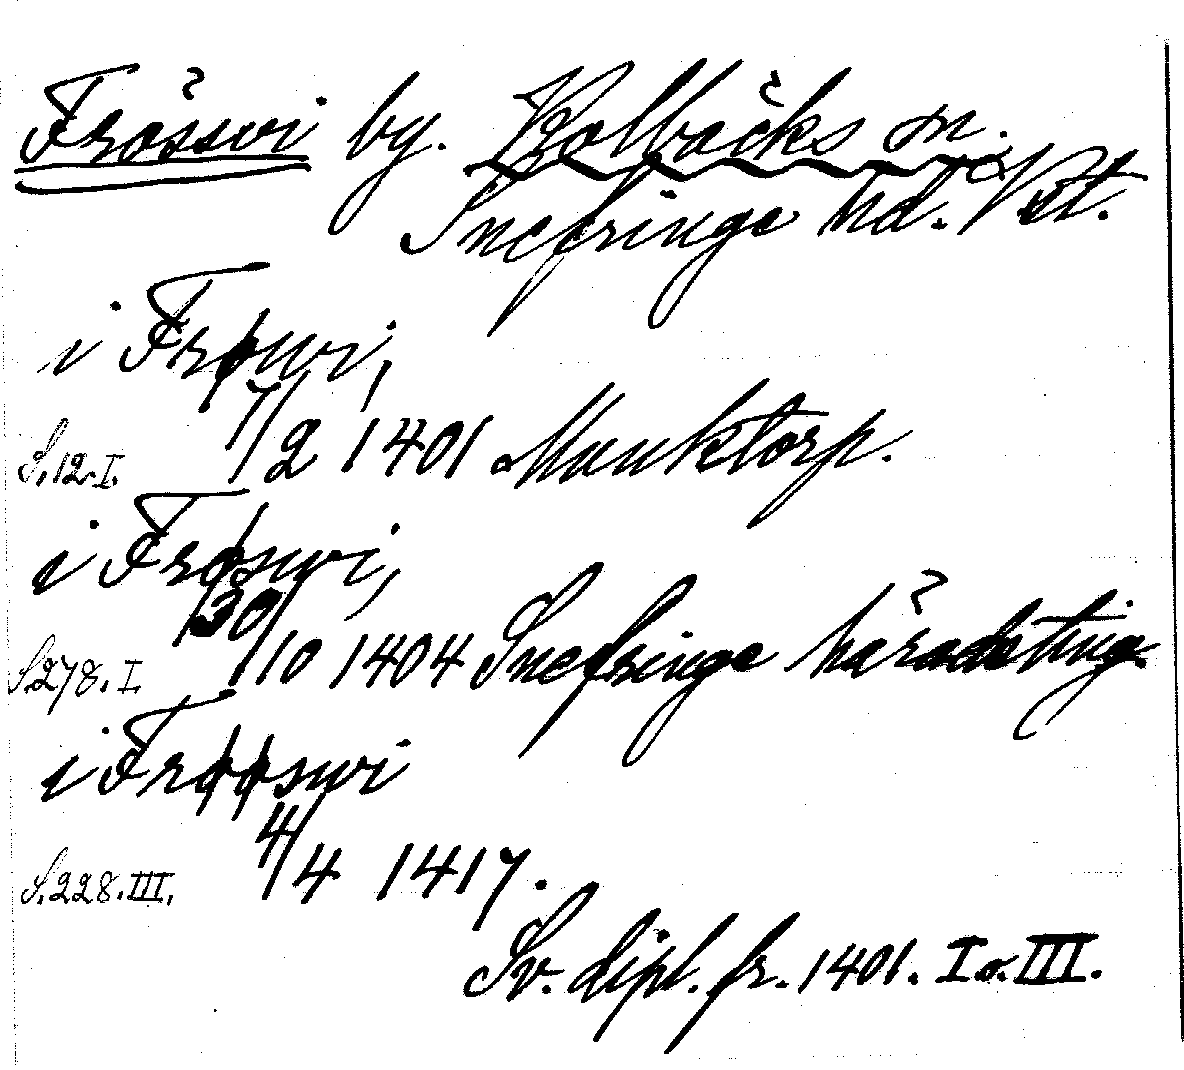 Frösswi by. Kolbäcks sn.
Snefringe hd. Vstt.
i Frøwi,
S. 12. I. 7/2 1401 Munktorp.
i Frøswi,
S. 278. I. 30/10 1404 Snefringe häradsting.
i Frøøswi
S. 228. III. 4/4 1417.
Sv. dipl. fr. 1401. I o. III.